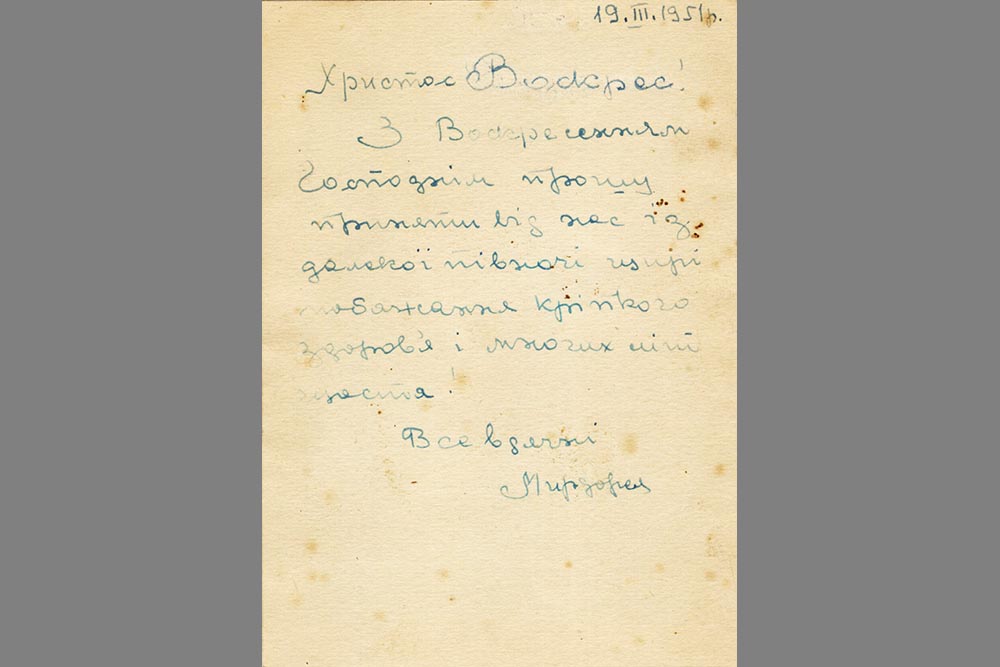 19.III.1951р.
Христос Воскрес!
З Воскресенням
Господнім прошу
приняти від нас із
далекої півночі щирі
побажання кріпкого
здоров'я і многих літ
щастя!
Все вдячні